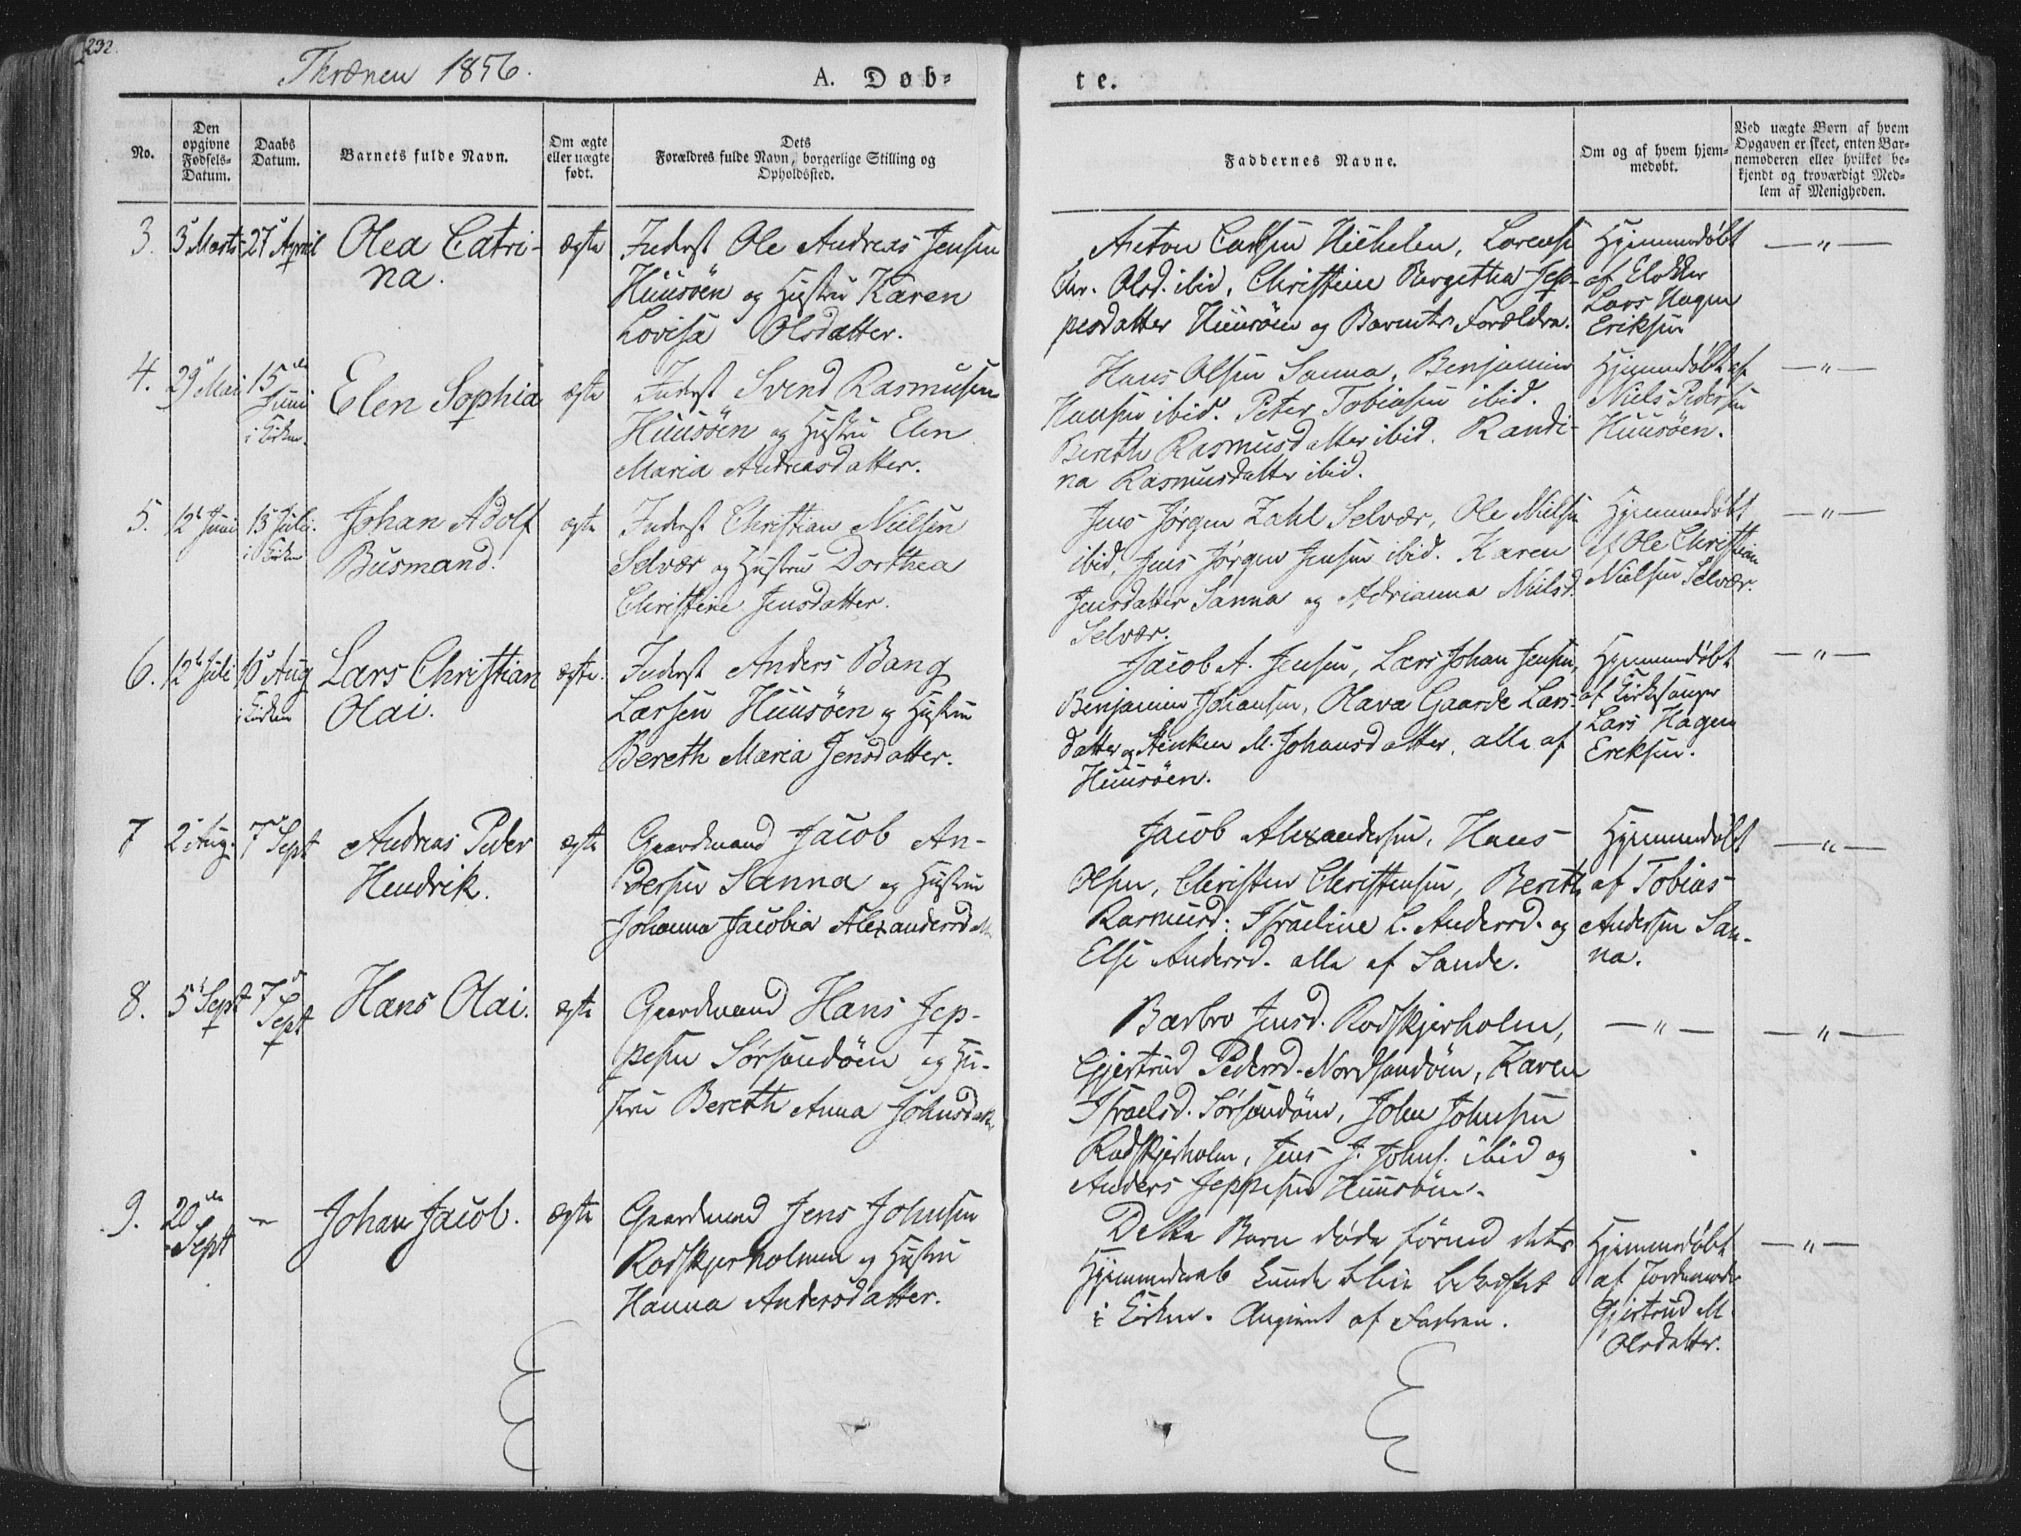 232.
Thrænen 1856.
A. Døb-
te.
No.
Den opgivne Fødsels-Datum.
Daabs Datum.
Barnets fulde Navn.
Om ægte eller uægte født.
Dets Forældres fulde Navn, borgerlige Stilling og Opholdssted.
Faddernes Navne.
Om og af hvem hjemmedøbt.
Ved uægte Børn af hvem Opgaven er skeet, enten Barnemoderen eller hvilket bekjendt og troværdigt Medlem af Menigheden.
3. 3 Marts 27 April
Olea Catri-
na.
ægte
Inderst Ole Andreas Jensen
Huusöen og Hustru Karen
Lovisa Olsdatter.
Anton Carlsen Lorense
Chr. Olsd. ibid, Christine Bergitha Jep-
pesdatter Huusöen og Barnets Forældre.
Hjemmedøbt
af Klokker
Lars Hagen
Eriksen
— " —
4. 29 Mai 15de
Juni
i Kirken.
Elen Sophia
ægte
Inderst Svend Rasmusen
Huusöen og Hustru Elen
Maria Andreasdatter.
Hans Olsen Sanna, Benjamin
Hansen ibid. Peter Tobiasen ibid.
Bereth Rasmusdatter ibid. Randi-
na Rasmusdatter ibid.
Hjemmedøbt af
Niels Pedersen
Huusöen.
— " —
5. 12 Juni 13 Juli.
i Kirken
Johan Adolf
Busmand.
ægte
Inderst Christian Nielsen
Selvær og Hustru Dorthea
Christine Jensdatter.
Jens Jørgen Zahl Selvær, Ole Nielsen
ibid, Jens Jørgen Jensen ibid. Karen
Jensdatter Sanna og Adrianna Nielsd.
Selvær.
Hjemmedøbt
af Ole Christian
Nielsen Selvær.
— " —
6. 12 Juli 10 Aug
i Kirken
Lars Christian
Olai.
ægte.
Inderst Anders Bang
Larsen Huusöen og Hustru
Bereth Maria Jensdatter.
Jacob A. Jensen, Lars Johan Jensen,
Benjamin Johansen, Olava Gaarde Lars-
datter og Anken M. Johansdatter, alle af
Huusöen.
Hjemmedøbt
af Kirkesanger
Lars Hagen
Eriksen.
— " —
7 2 Aug. 7 Sept
Andreas Peder
Hendrik.
ægte
Gaardmand Jacob An-
dersen Sanna og Hustru
Johanna Jacobia Alexandersdatter
Jacob Alexandersen, Hans
Olsen, Christen Christensen, Bereth
Rasmusd: Israeline L. Andersd. og
Else Andersd. alle af Sande.
Hjemmedøbt
af Tobias
Andersen San-
na.
— " —
8. 5 Sept 7
Sept
Hans Olai.
ægte
Gaardmand Hans Jep-
pesen Sørsandöen og Hu-
stru Bereth Anna Johnsdatter
Barbro Jensd. Rodskjerholm,
Gjertrud Pedersd. Nordsandöen, Karen
Israelsd. Sørsandöen, John Johnsen
Rodskjerholm, Jens J. Johns. ibid og
Anders Jeppesen Huusöen.
— " —
— " —
9. 20de
Sept
—
Johan Jacob.
ægte
Gaardmand Jens Johnsen
Rodskjerholmen og Hustru
Hanna Andersdatter.
Dette Barn døde førend dets
Hjemmedaab kunde blive bekræftet
i Kirken. Angivet af Faderen.
Hjemmedøbt
af Jordemoder
Gjertrud M.
Olsdatter.
— " —